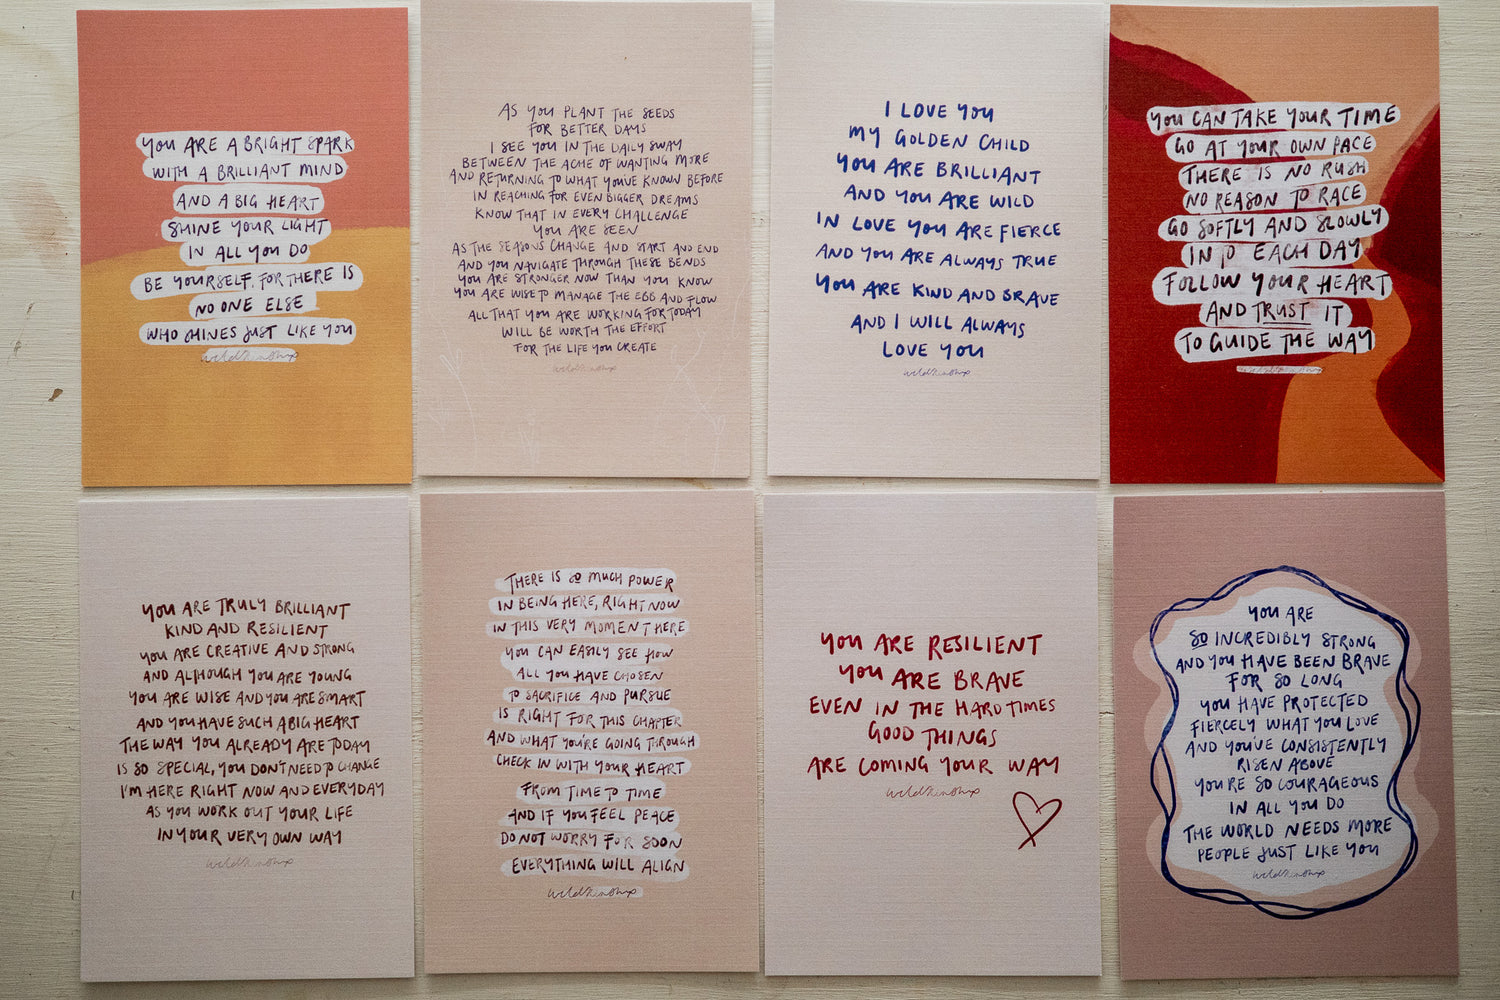 YOU ARE A BRIGHT SPARK
WITH A BRILLIANT MIND
AND A BIG HEART
SHINE YOUR LIGHT
IN ALL YOU DO
BE YOURSELF, FOR THERE IS
NO ONE ELSE
WHO SHINES JUST LIKE YOU
AS YOU PLANT THE SEEDS
FOR BETTER DAYS
I SEE YOU IN THE DAILY SWAY
BETWEEN THE ACHE OF WANTING MORE
AND RETURNING TO WHAT YOU'VE KNOWN BEFORE
IN REACHING FOR EVEN BIGGER DREAMS
KNOW THAT IN EVERY CHALLENGE
YOU ARE SEEN
AS THE SEASONS CHANGE AND START AND END
AND YOU NAVIGATE THROUGH THESE BENDS
YOU ARE STRONGER NOW THAN YOU KNOW
YOU ARE WISE TO MANAGE THE EBB AND FLOW
ALL THAT YOU ARE WORKING FOR TODAY
WILL BE WORTH THE EFFORT
FOR THE LIFE YOU CREATE
I LOVE YOU
MY GOLDEN CHILD
YOU ARE BRILLIANT
AND YOU ARE WILD
IN LOVE YOU ARE FIERCE
AND YOU ARE ALWAYS TRUE
YOU ARE KIND AND BRAVE
AND I WILL ALWAYS
LOVE YOU
YOU CAN TAKE YOUR TIME
GO AT YOUR OWN PACE
THERE IS NO RUSH
NO REASON TO RACE
GO SOFTLY AND SLOWLY
INTO EACH DAY
FOLLOW YOUR HEART
AND TRUST IT
TO GUIDE THE WAY
YOU ARE TRULY BRILLIANT
KIND AND RESILIENT
YOU ARE CREATIVE AND STRONG
AND ALTHOUGH YOU ARE YOUNG
YOU ARE WISE AND YOU ARE SMART
AND YOU HAVE SUCH A BIG HEART
THE WAY YOU ALREADY ARE TODAY
IS SO SPECIAL, YOU DON'T NEED TO CHANGE
I'M HERE RIGHT NOW AND EVERYDAY
AS YOU WORK OUT YOUR LIFE
IN YOUR VERY OWN WAY
THERE IS SO MUCH POWER
IN BEING HERE, RIGHT NOW
IN THIS VERY MOMENT HERE
YOU CAN EASILY SEE HOW
ALL YOU HAVE CHOSEN
TO SACRIFICE AND PURSUE
IS RIGHT FOR THIS CHAPTER
AND WHAT YOU'RE GOING THROUGH
CHECK IN WITH YOUR HEART
FROM TIME TO TIME
AND IF YOU FEEL PEACE
DO NOT WORRY FOR SOON
EVERYTHING WILL ALIGN
YOU ARE RESILIENT
YOU ARE BRAVE
EVEN IN THE HARD TIMES
GOOD THINGS
ARE COMING YOUR WAY
YOU ARE
SO INCREDIBLY STRONG
AND YOU HAVE BEEN BRAVE
FOR SO LONG
YOU HAVE PROTECTED
FIERCELY WHAT YOU LOVE
AND YOU'VE CONSISTENTLY
RISEN ABOVE
YOU'RE SO COURAGEOUS
IN ALL YOU DO
THE WORLD NEEDS MORE
PEOPLE JUST LIKE YOU